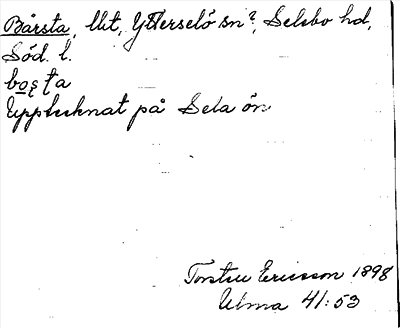 Bårsta, llt, Ytterselö sn?, Selebo hd,
Söd. l.
bo̲ʂta
Upptecknat på Sela ön
Torsten Ericsson 1898
Ulma 41:53